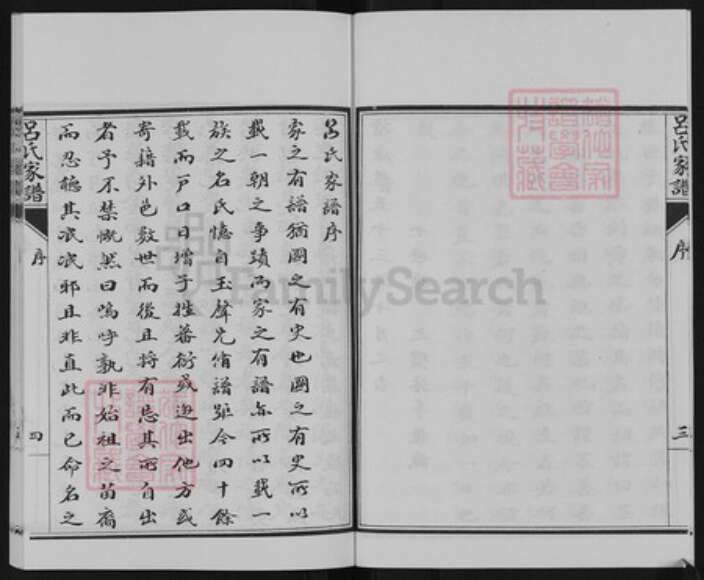 呂氏家譜
序
三
呂氏家譜序
家之有譜猶國之有史也國之有史所以
載一朝之事蹟而家之有譜亦所以載一
族之名氏憶自玉聲兄脩譜距今四十餘
載而戶口日增子姓蕃衍或遷出他方或
寄籍外邑數世而後且將有忘其所自出
者予不禁慨然曰嗚呼孰非始祖之苗裔
而忍聽其泯泯邪且非直此而已命名之
呂氏家譜
序
四
FamilySearch